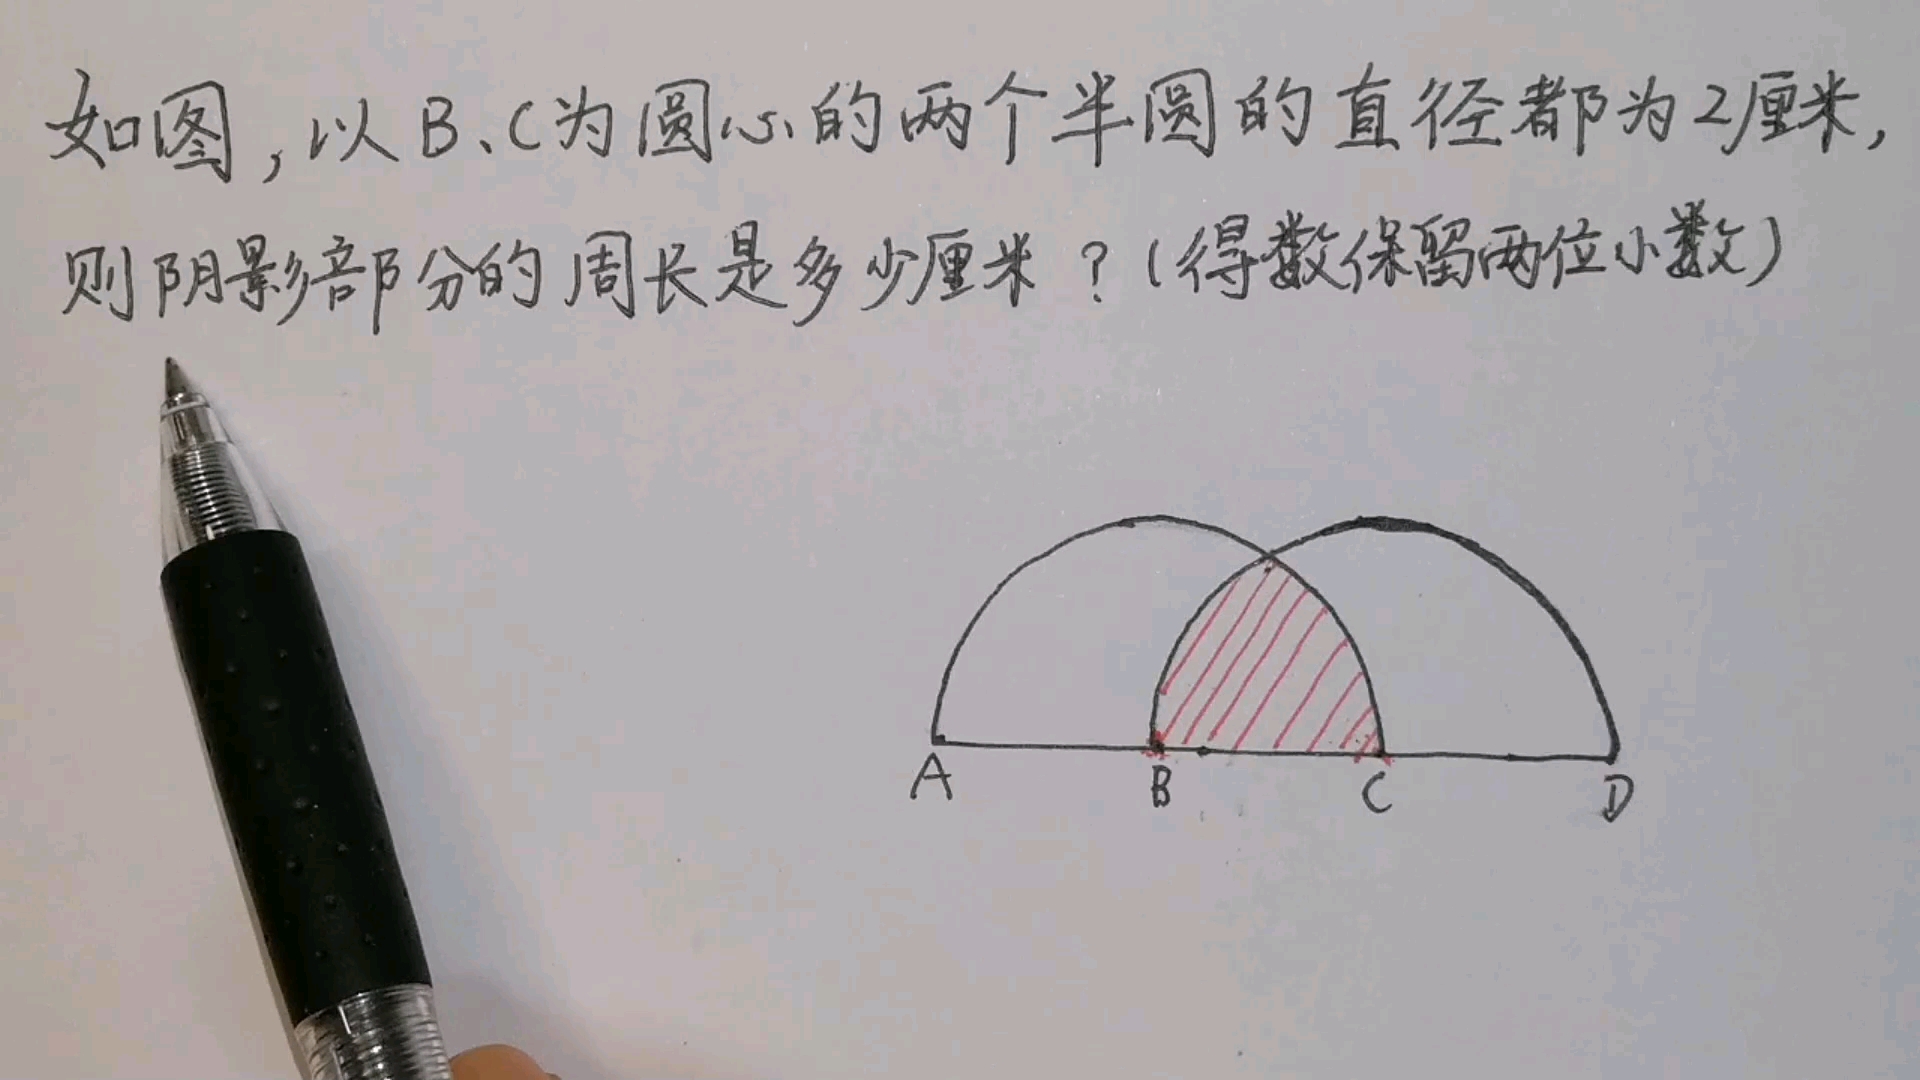 如图，以B、C为圆心的两个半圆的直径都为2厘米，
则阴影部分的周长是多少厘米？（得数保留两位小数）
A B C D